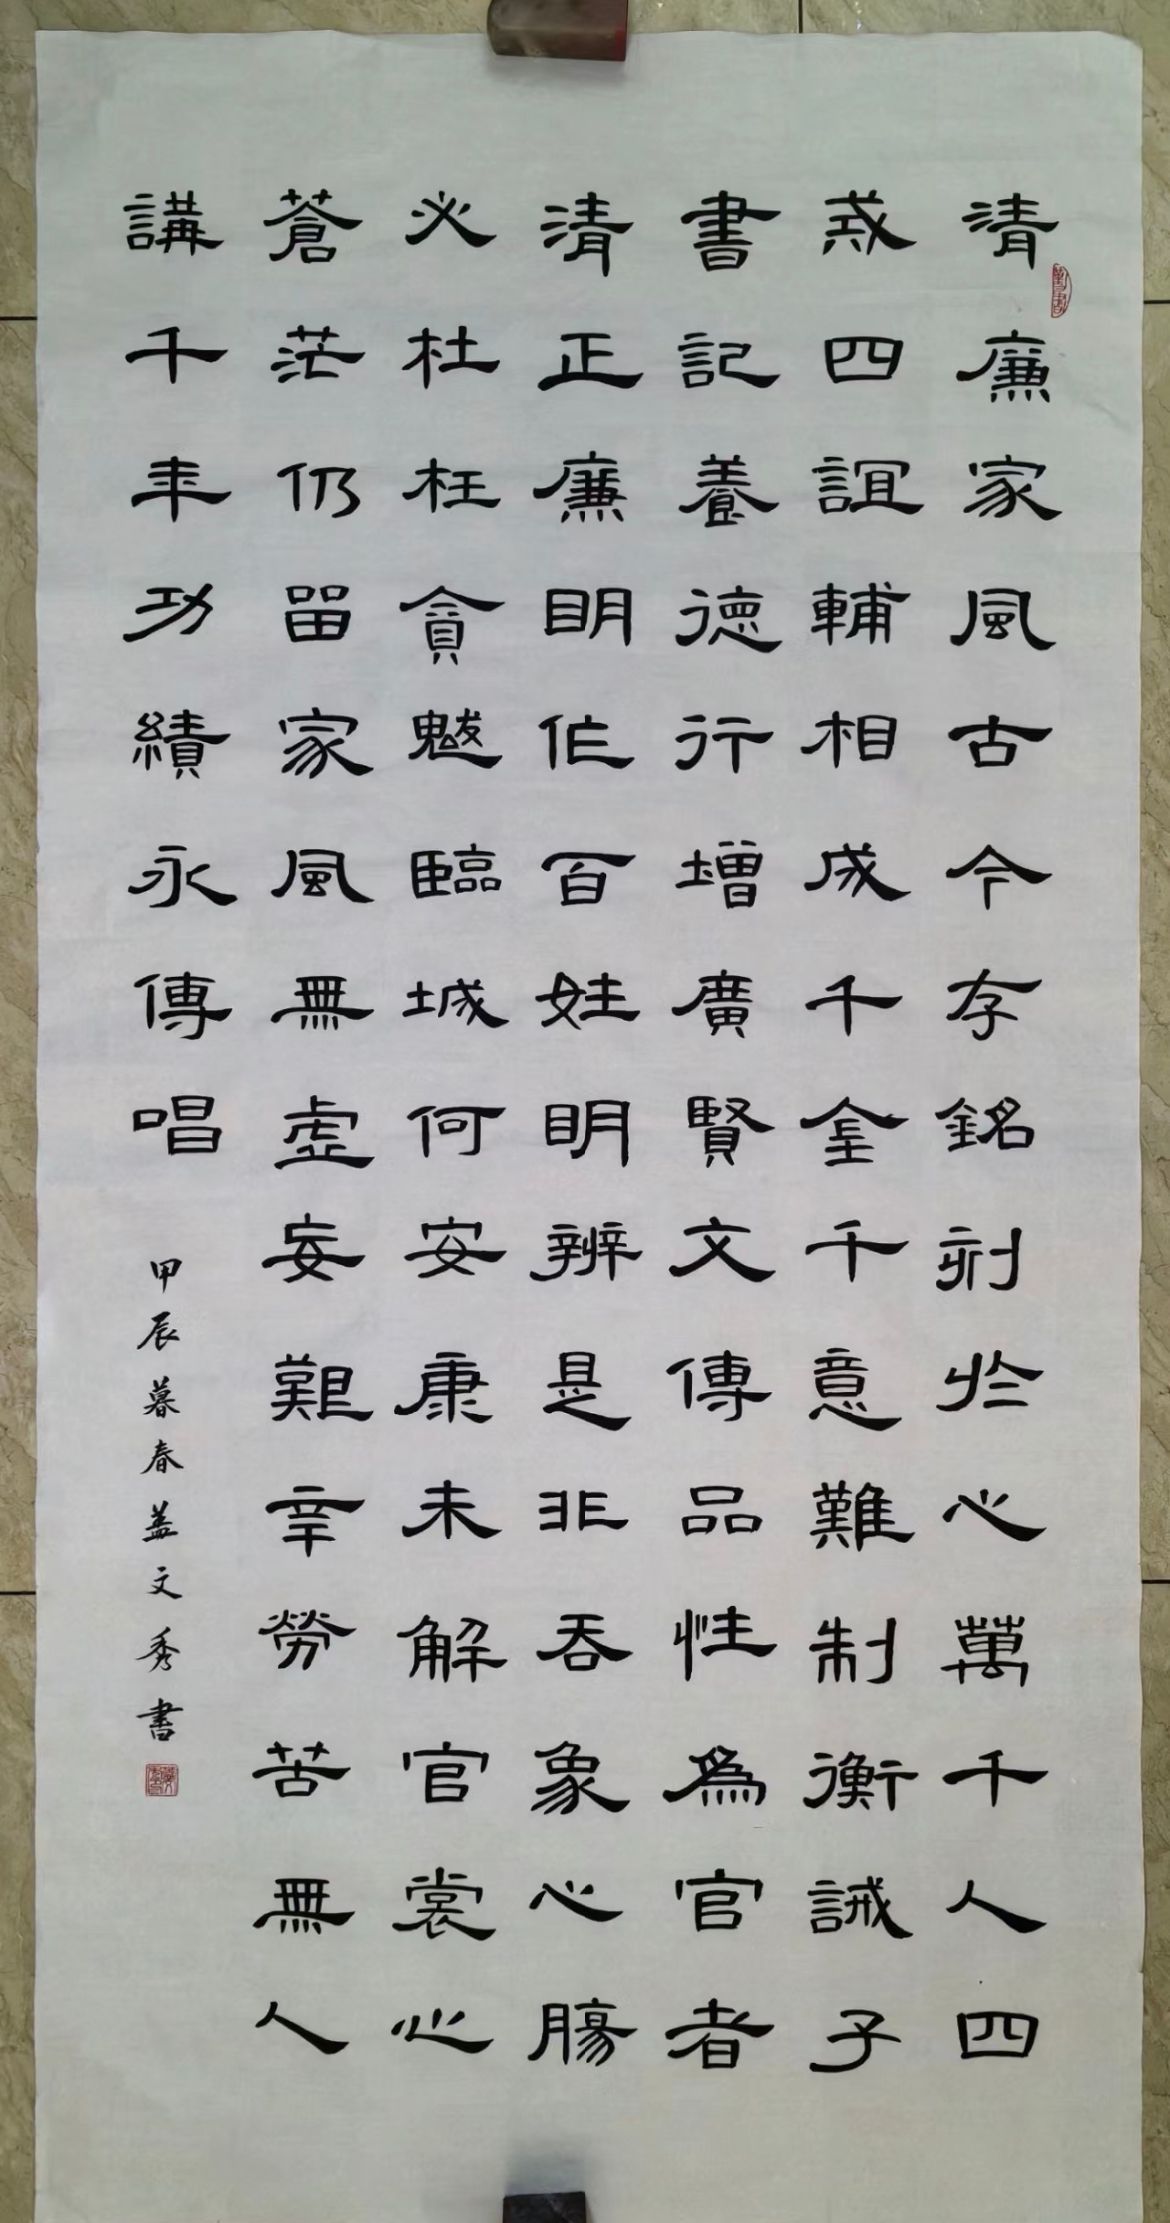 清廉家風古今存銘刻於心萬千人四
戒四誼輔相成千金千意難制衡誡子
書記養德行增廣賢文傳品性為官者
清正廉明作百姓明辨是非吞象心腸
必杜枉貪魃臨城何安康未解官裳心
蒼茫仍留家風無虛妄艱辛勞苦無人
講千年功績永傳唱
甲辰暮春蓋文秀書